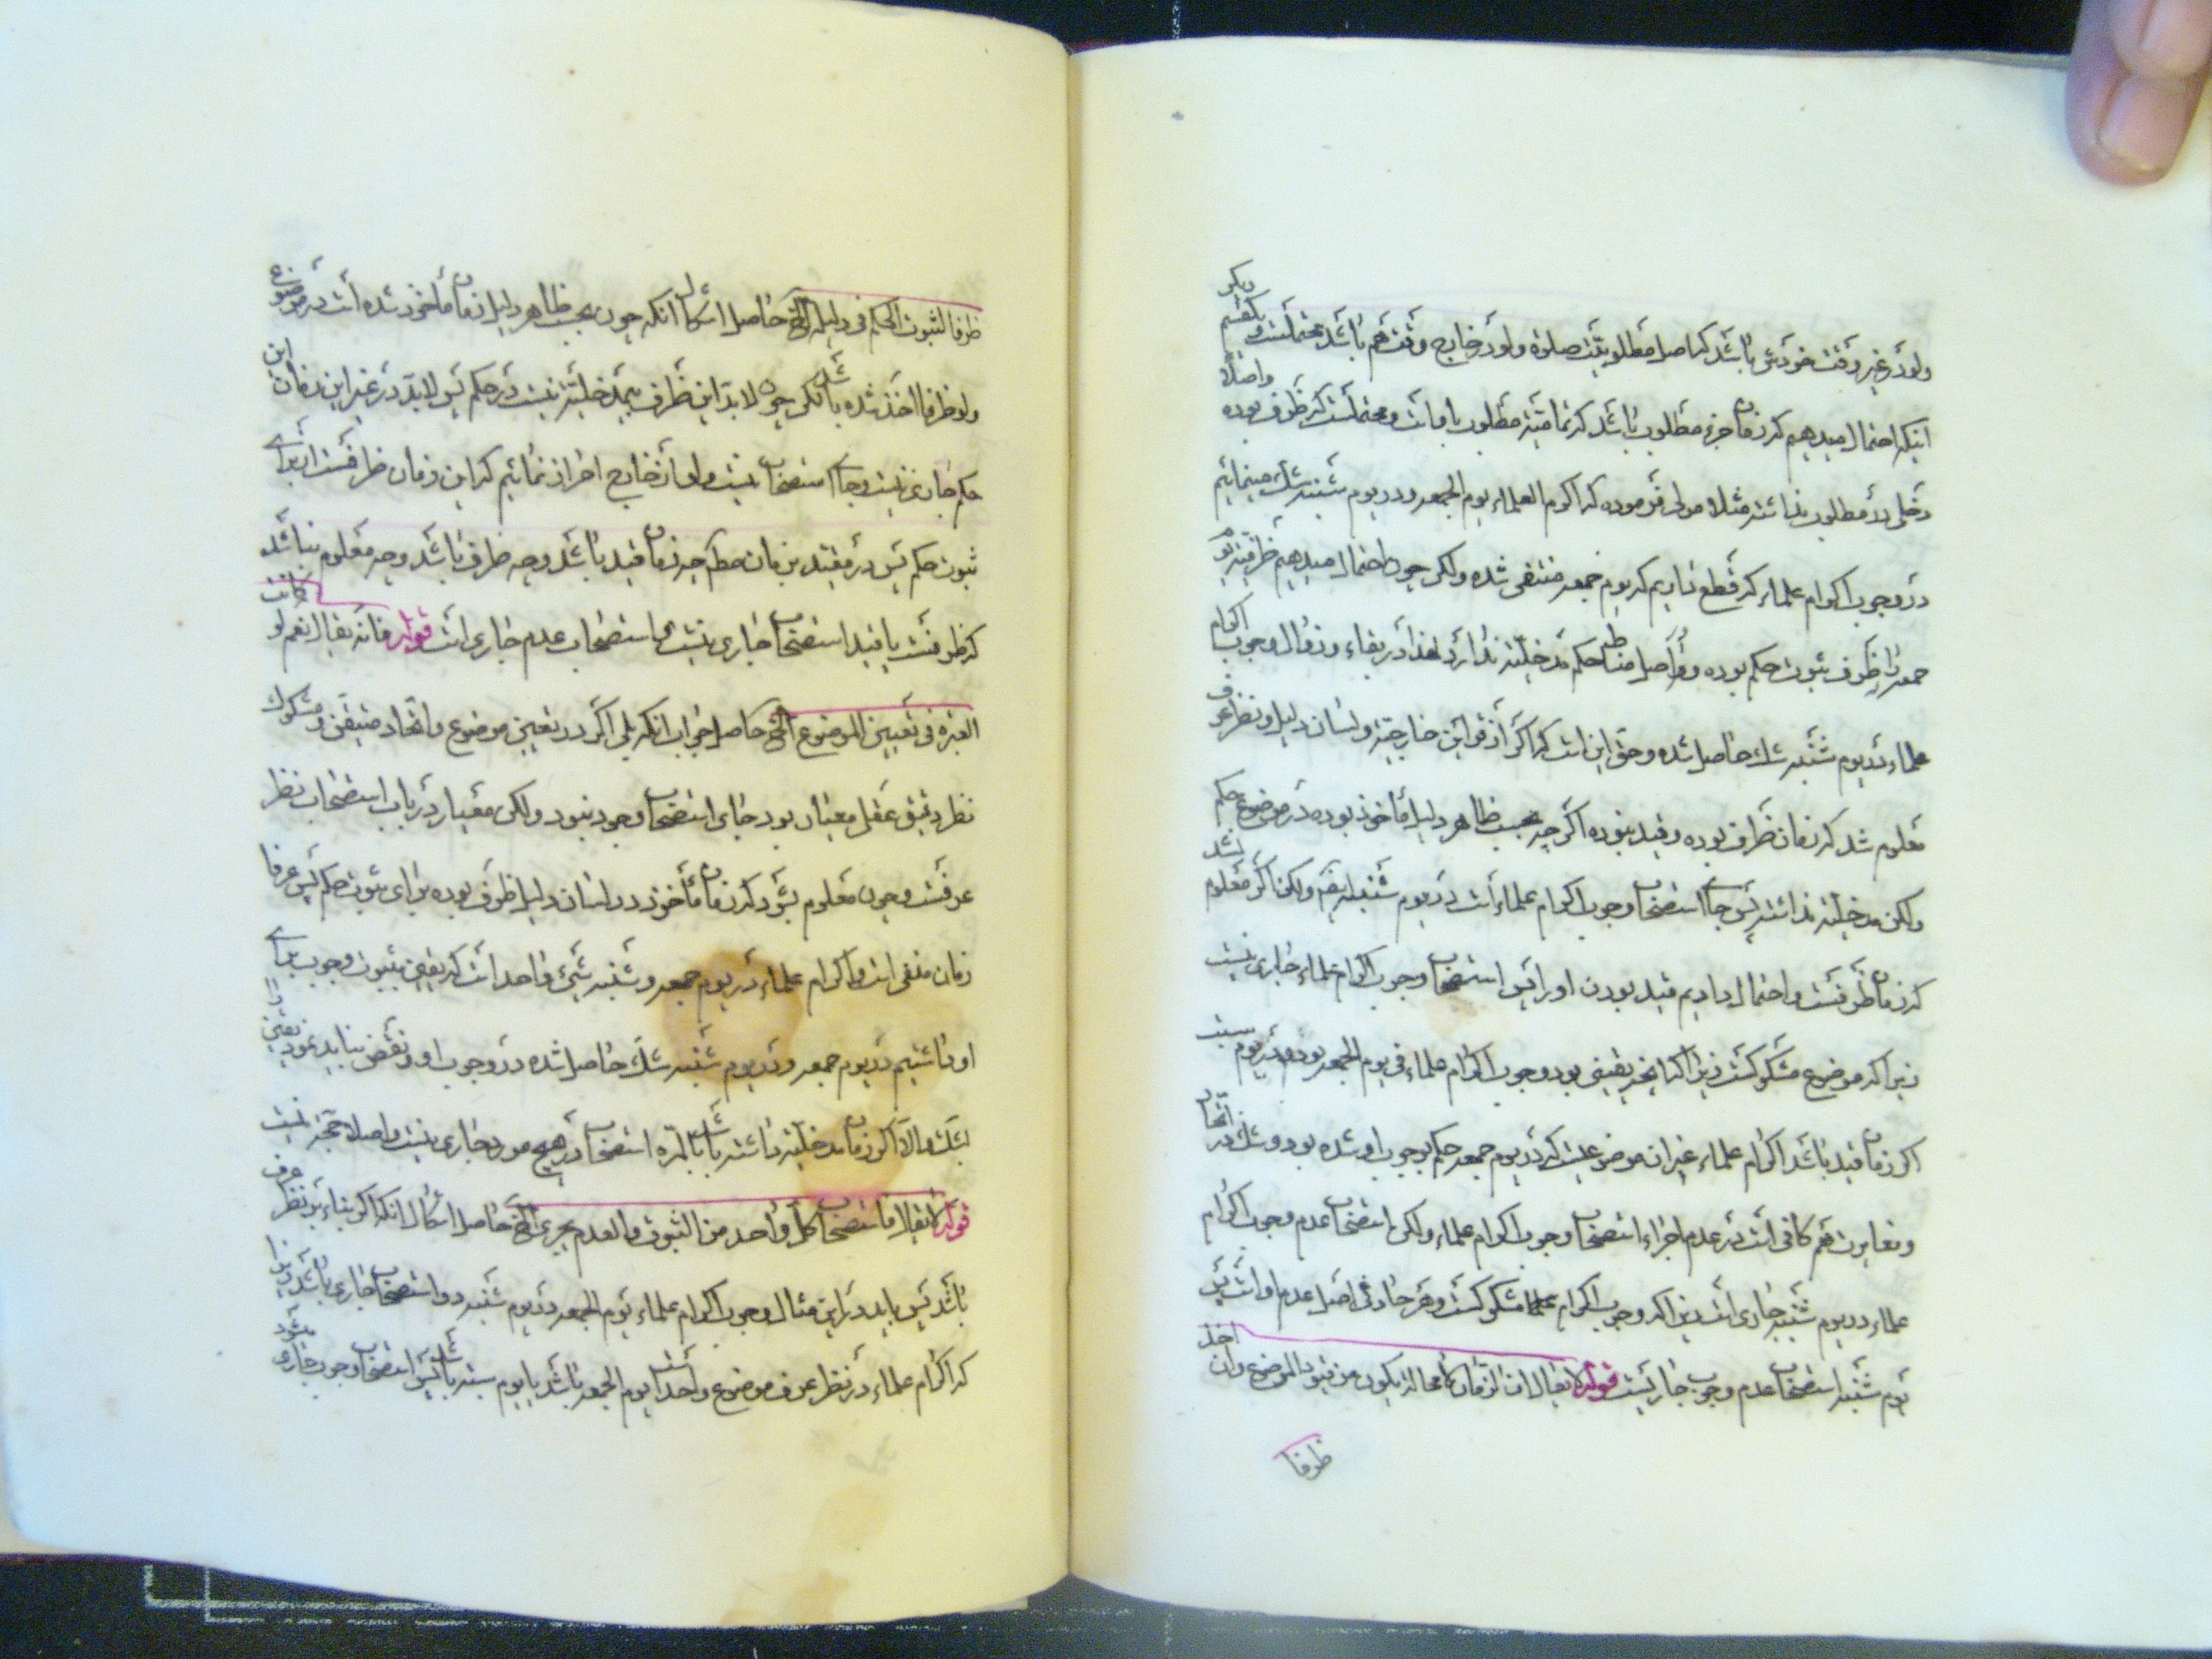 ولو در غیر وقت خودش باشد که اصل مطلوبیت صلوة ولو در خارج وقت هم باشد محتملست و بگفتیم دیگر
اینکه احتمال میدهیم که زمان جزء مطلوب باشد که تمامیته مطلوب باو است و محتملست که ظرف بوده واصلاً
دخلی در مطلوب نداشته مثلا مولی فرموده که اکرم العلماء یوم الجمعه و در یوم شنبه شک مینمائیم
در وجوب اکرام علماء که قطع داریم که یوم جمعه منتفی شده ولکن چون احتمال میدهیم ظرفیة یوم
جمعه را ظرف ثبوت حکم بوده و در اصل مناط حکم مدخلیته ندارد لهذا در بقاء و زوال وجوب اکرام
علماء در یوم شنبه شک حاصل شده و حق این است که اگر از قراین خارجیه ولسان دلیل و نظر عرف
معلوم شد که زمان ظرف بوده و قید نبوده اگر چه بحسب ظاهر دلیل مأخوذ بوده در موضوع حکم
ولکن مدخلیته نداشته پس جای استصحاب وجوب اکرام علماء است در یوم شنبه ولکن اگر معلوم نشد
که زمان ظرفست و احتمال دادیم قید بودن او را پس استصحاب وجوب اکرام علماء جاری نیست
زیرا که موضوع مشکوکست زیرا که آنچه یقینی بود وجوب اکرام علماء فی یوم الجمعه بود و در یوم سبت
اگر زمان قید باشد اکرام علماء غیر ان موضوعیست که در یوم جمعه حکم بوجوب او شده بود و شک در اتحاد
و تغایرت هم کافی است در عدم اجراء استصحاب وجوب اکرام علماء ولکن استصحاب عدم وجوب اکرام
علماء در یوم شنبه جاری است زیرا که وجوب اکرام علماء مشکوکست و هر حادثی اصل عدم او است پس
یوم شنبه استصحاب عدم وجوب جاریست قوله لا یقال ان الزمان لا محالة یکون من قیود الموضوع وان اخذ
ظرفا
ظرفا لثبوت الحکم فی دلیله الخ حاصل اشکال انکه چون بحسب ظاهر دلیل زمان مأخوذ شده است در موضوع
ولو ظرفا اخذ شده باشد لکن چون لابد این ظرف بیمدخلیته نیست در حکم پس لابد در غیر این زمان این
حکم جاری نیست و جای استصحاب نیست ولو از خارج احراز نمائیم که این زمان ظرفست از برای
ثبوت حکم پس در مقید بزمان مطلقا چه زمان قید باشد و چه ظرف باشد و چه معلوم نباشد
که ظرفست یا قید استصحاب جاری نیست و استصحاب عدم جاری است قوله فانه یقال نعم لو کانت
العبرة فی تعیین الموضوع الخ حاصل جواب انکه بلی اگر در تعیین موضوع و اتحاد متیقن و مشکوک
نظر دقیق عقلی معیار بود جای استصحاب وجود نبود ولکن معیار در باب استصحاب نظر
عرفست و چون معلوم بشود که زمان مأخوذ در لسان دلیل ظرف بوده برای ثبوت حکم پس عرفا
زمان منفی است و اکرام علماء در یوم جمعه و شنبه شیئ واحد است که یقین بثبوت وجوب برای
او داشتیم در یوم جمعه و در یوم شنبه شک حاصل شده در وجوب او و نقض نباید نمود یقین را
بشک والا اگر زمان مدخلیته داشته باشد بالمره استصحاب در هیچ مورد جاری نیست و اصلا حجة نیست
قوله لا یقال فاستصحاب کل واحد من الثبوت و العدم یجری الخ حاصل اشکال انکه اگر بناء بر نظر عرف
باشد پس باید در این مثال وجوب اکرام علماء یوم الجمعه در یوم شنبه دو استصحاب جاری باشد زیرا
که اکرام علماء در نظر عرف موضوع واحد است یوم الجمعه باشد یا یوم سبت باشد پس استصحاب وجوب جاری میشود